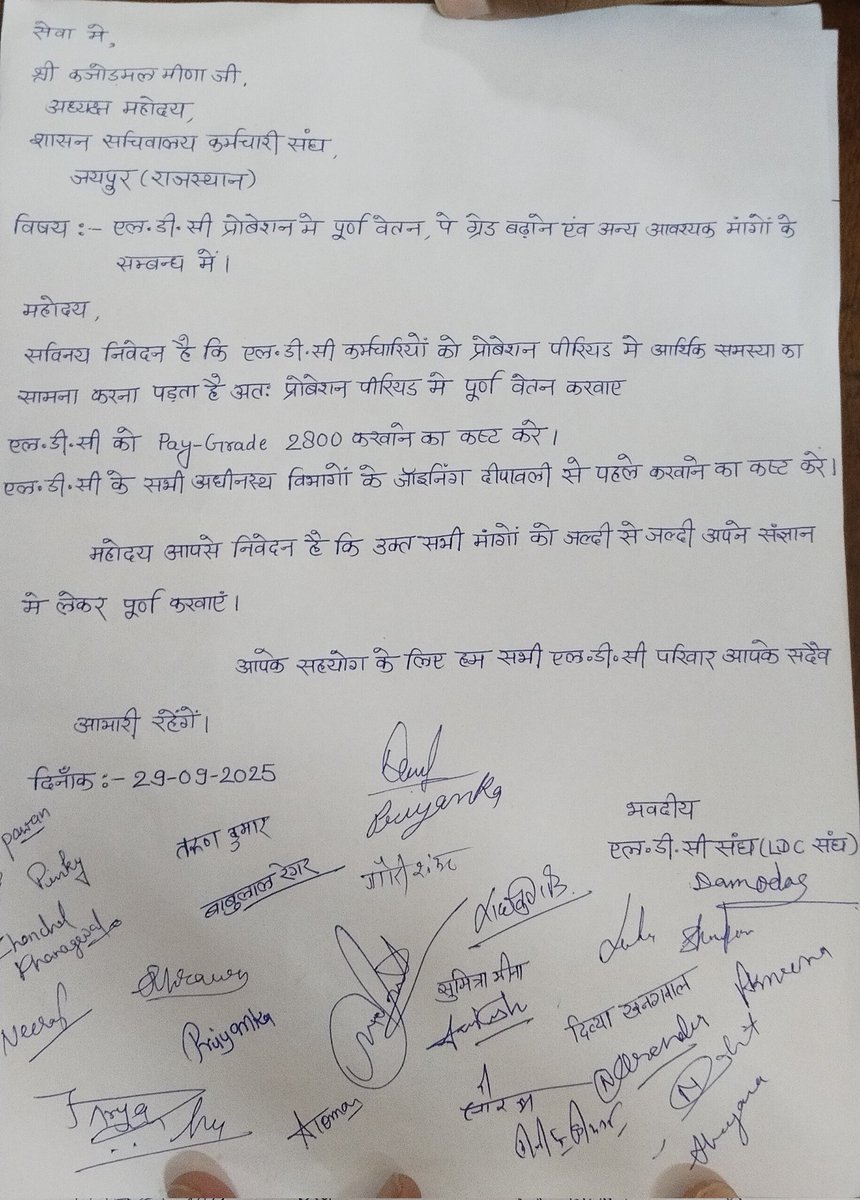 सेवा मे,
श्री कजोडमल मीणा जी,
अध्यक्ष महोदय,
शासन सचिवालय कर्मचारी संघ,
जयपुर (राजस्थान)
विषय :- एल.डी.सी प्रोबेशन मे पूर्ण वेतन, पे ग्रेड बढ़ाने एंव अन्य आवश्यक मांगों के
सम्बन्ध में।
महोदय,
सविनय निवेदन है कि एल.डी.सी कर्मचारियों को प्रोबेशन पीरियड मे आर्थिक समस्या का
सामना करना पड़ता है अतः प्रोबेशन पीरियड मे पूर्ण वेतन करवाए
एल.डी.सी को Pay-Grade 2800 करवाने का कष्ट करे।
एल.डी.सी के सभी अधीनस्थ विभागों के जॉइनिंग दीपावली से पहले करवाने का कष्ट करे।
महोदय आपसे निवेदन है कि उक्त सभी मांगों को जल्दी से जल्दी अपने संज्ञान
मे लेकर पूर्ण करवाएं।
आपके सहयोग के लिए हम सभी एल.डी.सी परिवार आपके सदैव
आभारी रहेंगें।
दिनाँक :- 29-09-2025
भवदीय
एल.डी.सी संघ (LDC संघ)
Pawan
Priyanka
तरुण कुमार
Punky
बाबुलाल रेगर
गौरी शंकर
Damodar
Chanchal
Khanagwal
सुमित्रा मीणा
दिव्या खनगवाल
Neeraj
Priyanka